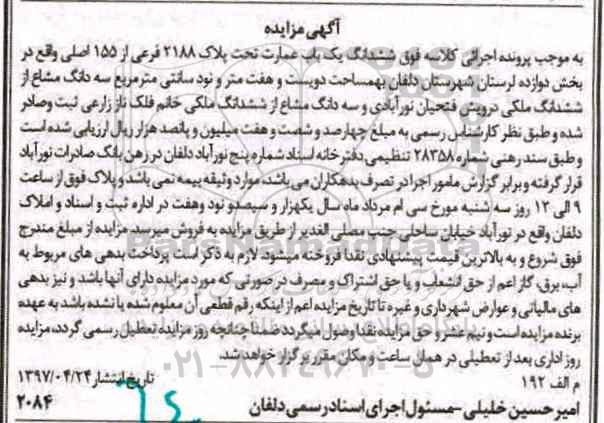 آگهی مزایده
به موجب پرونده اجرائی کلاسه فوق ششدانگ یک باب عمارت تحت پلاک ۲۱۸۸ فرعی از ۱۵۵ اصلی واقع در
بخش دوازده لرستان شهرستان دلفان بهمساحت دویست و هفت متر و نود سانتی مترمربع سه دانگ مشاع از
ششدانگ ملکی درویش فتحیان نورآبادی و سه دانگ مشاع از ششدانگ ملکی خانم فلک ناز زارعی ثبت وصادر
شده و طبق نظر کارشناس رسمی به مبلغ چهارصد و شصت و هفت میلیون و پانصد هزار ریال ارزیابی شده است
و طبق سند رهنی شماره ۲۸۳۵۸ تنظیمی دفترخانه اسناد شماره پنج نورآباد دلفان در رهن بانک صادرات نورآباد
قرار گرفته و برابر گزارش مامور اجرا در تصرف بدهکاران می باشد، موارد وثیقه بیمه نمی باشد و پلاک فوق از ساعت
۹ الی ۱۲ روز سه شنبه مورخ سی ام مرداد ماه سال یکهزار و سیصدو نود وهفت در اداره ثبت و اسناد و املاک
دلفان واقع در نورآباد خیابان ساحلی جنب مصلی الغدیر از طریق مزایده به فروش میرسد. مزایده از مبلغ مندرج
فوق شروع و به بالاترین قیمت پیشنهادی نقدا فروخته میشود. لازم به ذکر است پرداخت بدهی های مربوط به
آب، برق، گاز اعم از حق انشعاب و یا حق اشتراک و مصرف در صورتی که مورد مزایده دارای آنها باشد و نیز بدهی
های مالیاتی و عوارض شهرداری و غیره تا تاریخ مزایده اعم از اینکه رقم قطعی آن معلوم شده یا نشده باشد به عهده
برنده مزایده است و نیم عشر و حق مزایده نقدا وصول میگردد ضمنا چنانچه روز مزایده تعطیل رسمی گردد، مزایده
روز اداری بعد از تعطیلی در همان ساعت و مکان مقرر برگزار خواهد شد.
تاریخ انتشار ۱۳۹۷/۰۴/۲۴
م الف ۱۹۲
امیر حسین خلیلی - مسئول اجرای اسناد رسمی دلفان
۲۰۸۴
ParsNamadData
۰۲۱-۸۸۳۴۹۶۷۰-۵